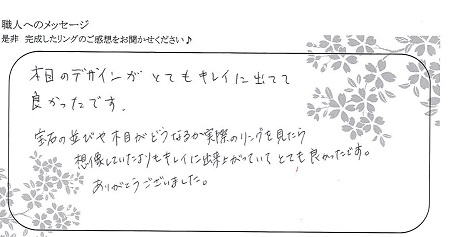 職人へのメッセージ
是非 完成したリングのご感想をお聞かせください♪
木目のデザインが とてもキレイに出てて
良かったです。
宝石の並びや木目がどうなるか実際のリングを見たら
想像していたよりもキレイに出来上がっていて とても良かったです。
ありがとうございました。